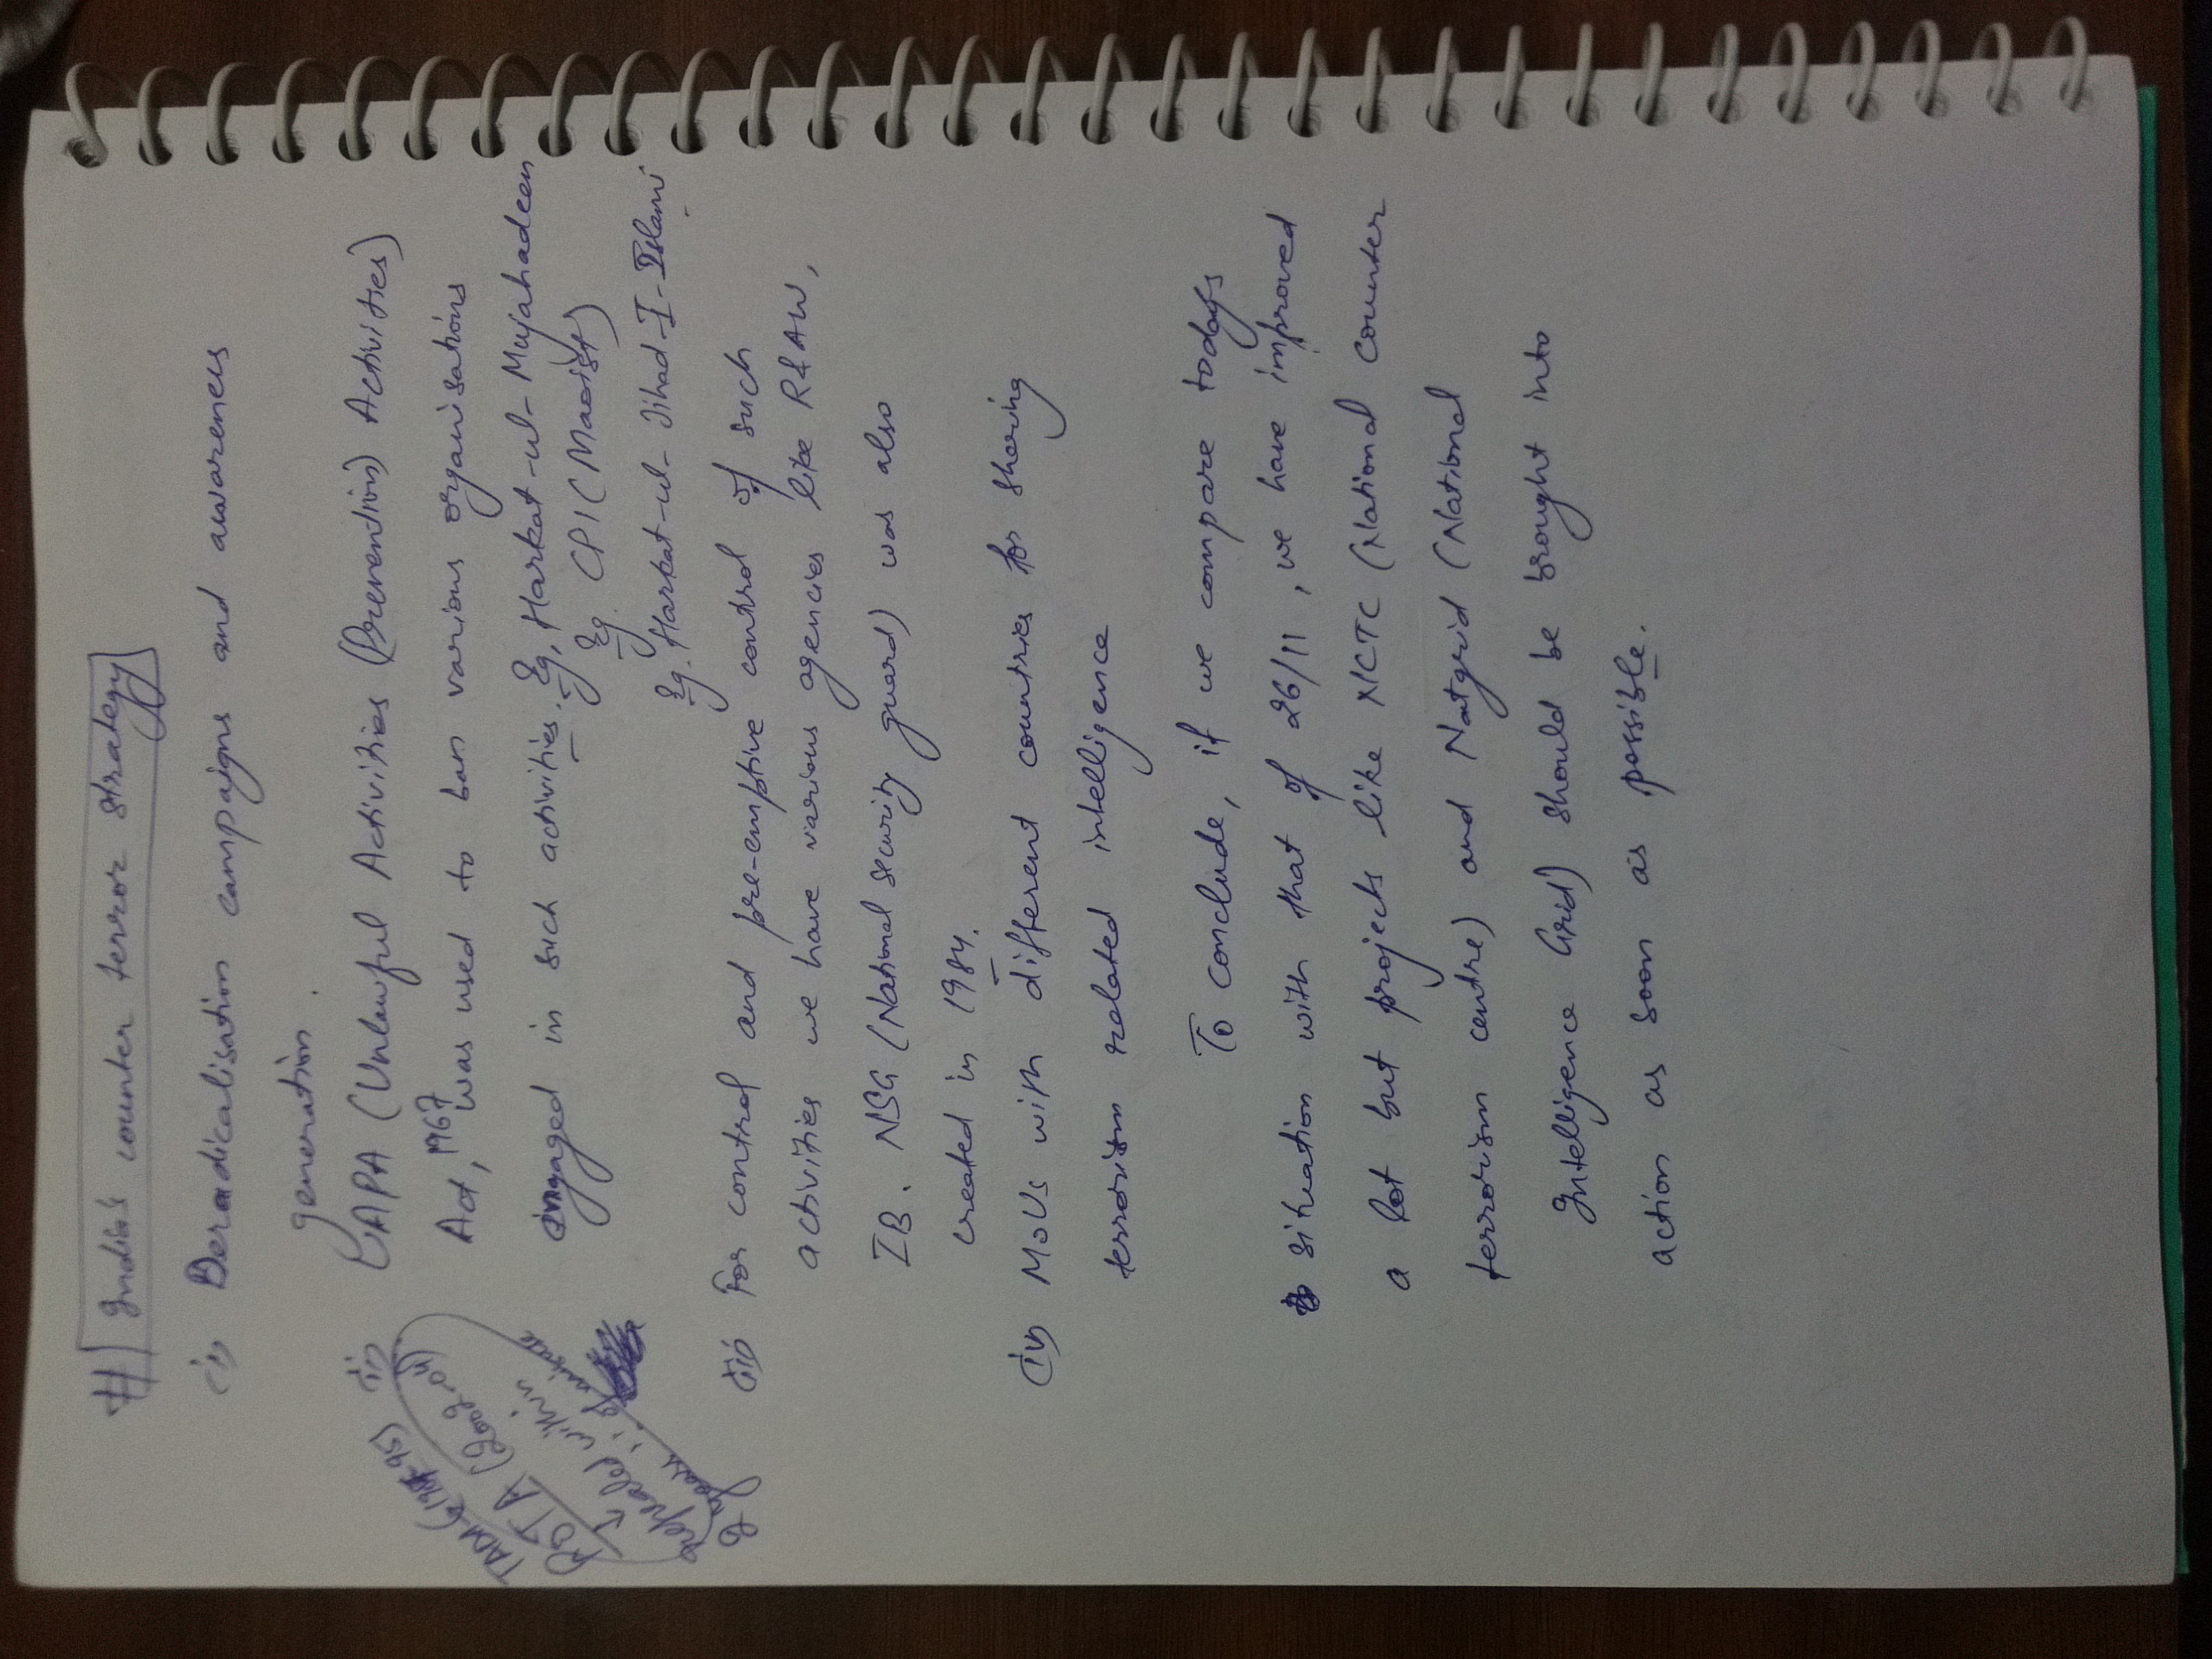 # India's counter terror strategy
(i) Deradicalisation campaigns and awareness
generation.
(ii) UAPA (Unlawful Activities (Prevention) Activities)
Act, 1967 was used to ban various organisations
engaged in such activities. Eg, Harkat-ul-Mujahadeen
Eg. CPI (Maoist)
Eg. Harkat-ul-Jihad-I-Islami
TADA
POTA (2002-04)
(iii) For control and pre-emptive control of such
activities we have various agencies like R&AW,
IB. NSG (National security guard) was also
created in 1984.
(iv) MoUs with different countries for sharing
terrorism related intelligence
To conclude, if we compare todays
situation with that of 26/11, we have improved
a lot but projects like NCTC (National counter
terrorism centre) and Natgrid (National
Intelligence Grid) should be brought into
action as soon as possible.